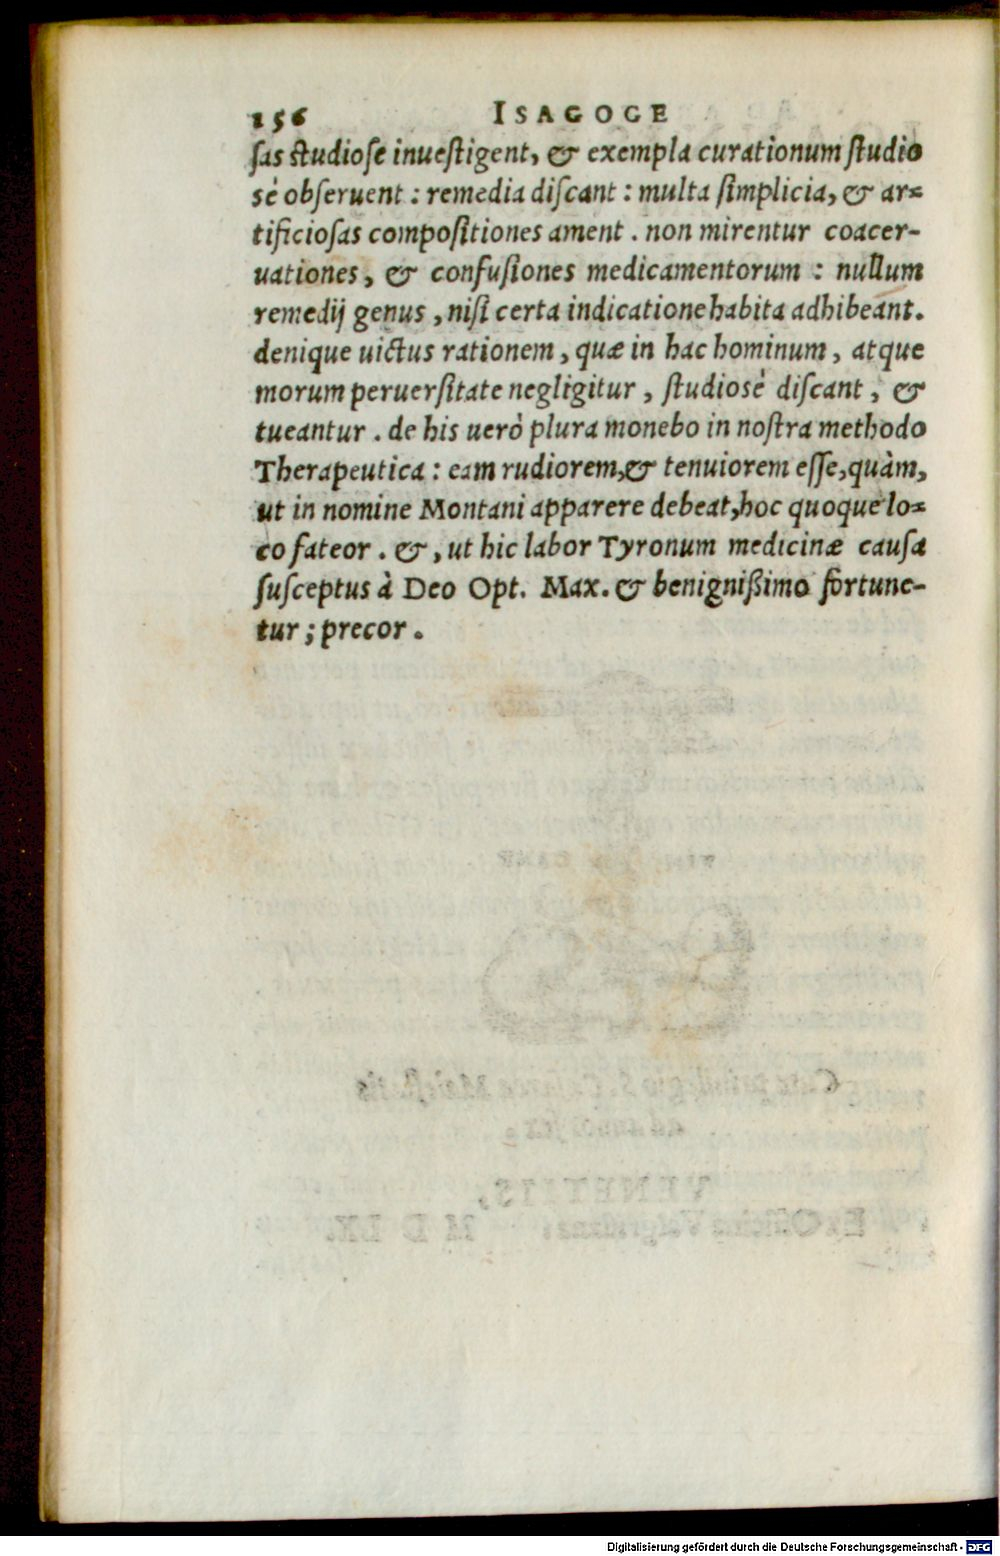 156 ISAGOCE
ſas ſtudioſe inueſtigent, & exempla curationum ſtudio
sè obſeruent : remedia diſcant : multa ſimplicia, & ar=
tificioſas compoſitiones ament . non mirentur coacer-
uationes, & confuſiones medicamentorum : nullum
remedij genus , niſi certa indicatione habita adhibeant.
denique uictus rationem , quæ in hac hominum , atque
morum peruerſitate negligitur , ſtudiosè diſcant , &
tueantur . de his uerò plura monebo in noſtra methodo
Therapeutica : eam rudiorem,& tenuiorem eſſe,quàm,
ut in nomine Montani apparere debeat,hoc quoque lo=
co fateor . & , ut hic labor Tyronum medicinæ cauſa
ſuſceptus à Deo Opt. Max. & benignißimo fortune-
tur ; precor .
Cum priuilegio S. Cæſareæ Maieſtatis
ad annos ſex.
VENETIIS,
Ex Officina Valgriſiana, M D LX.
Digitalisierung gefördert durch die Deutsche Forschungsgemeinschaft - DFG